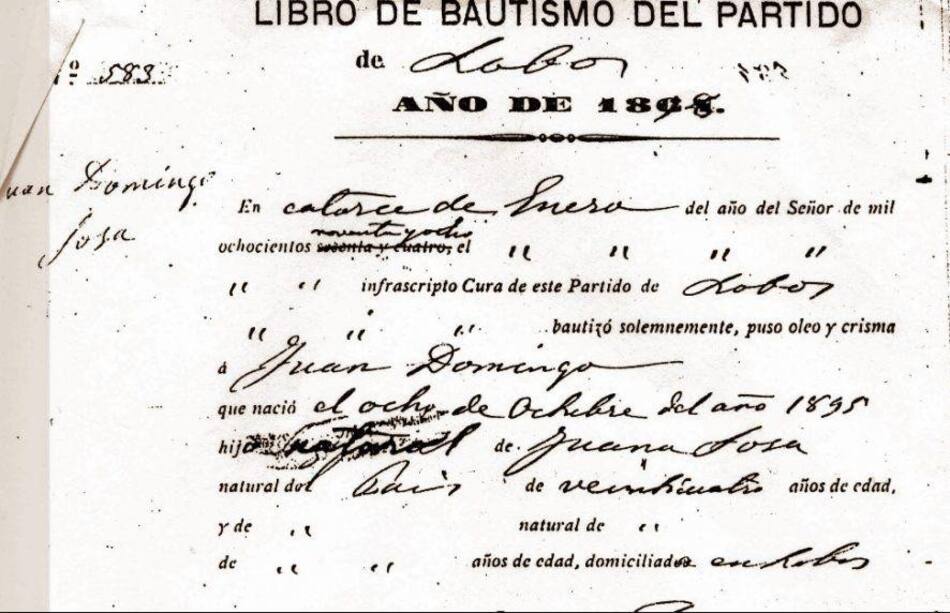 LIBRO DE BAUTISMO DEL PARTIDO
Nº 583
de Lobos
AÑO DE 1898.
Juan Domingo
Sosa
En catorce de Enero del año del Señor de mil
noventa y ocho
ochocientos setenta y cuatro, el " " " "
" " infrascripto Cura de este Partido de Lobos
" " " bautizó solemnemente, puso oleo y crisma
á Juan Domingo
que nació el ocho de Octubre del año 1895
hijo natural de Juana Sosa
natural del Pais de veinticuatro años de edad,
y de " natural de "
de " " años de edad, domiciliados en Lobos